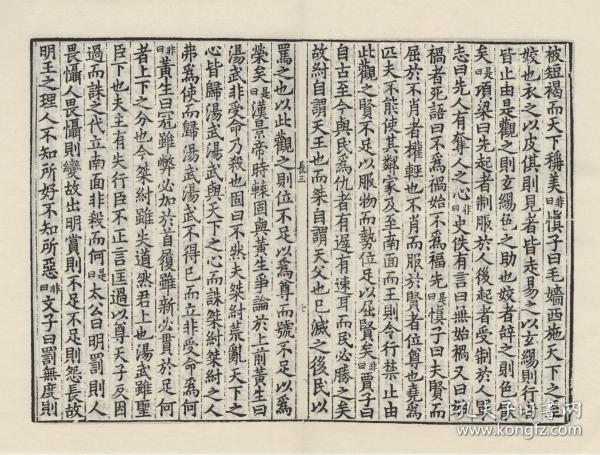 被短褐而天下稱美非曰慎子曰毛嬙西施天下之至
姣也衣之以皮倛則見者皆走易之以玄緆則行者
皆止由是觀之則玄緆色之助也姣者辭之則色厭
矣是曰項梁曰先起者制服於人後起者受制於人軍
志曰先人有奪人之心非曰史佚有言曰無始禍又曰始
禍者死語曰不爲禍始不爲福先是曰慎子曰夫賢而
屈於不肖者權輕也不肖而服於賢者位尊也堯爲
匹夫不能使其鄰家及至南面而王則令行禁止由
此觀之賢不足以服物而勢位足以屈賢矣非曰賈子曰
自古至今與民爲仇者有遲有速耳而民必勝之矣
故紂自謂天王也而桀自謂天父也已滅之後民以
長三
七
罵之也以此觀之則位不足以爲尊而號不足以爲
榮矣是曰漢景帝時轅固與黃生爭論於上前黃生曰
湯武非受命乃殺也固曰不然夫桀紂荒亂天下之
心皆歸湯武湯武與天下之心而誅桀紂桀紂之人
弗爲使而歸湯武湯武不得已而立非受命爲何
非曰黃生曰冠雖弊必加於首履雖新必貫於足何
者上下之分也今桀紂雖失道然君上也湯武雖聖
臣下也夫主有失行臣不正言匡過以尊天子反因
過而誅之代立南面非殺而何是曰太公曰明罰則人
畏懾人畏懾則變故出明賞則不足不足則怨長故
明王之理人不知所好不知所惡非曰文子曰罰無度則
孔夫子旧书网
www.kongfz.com